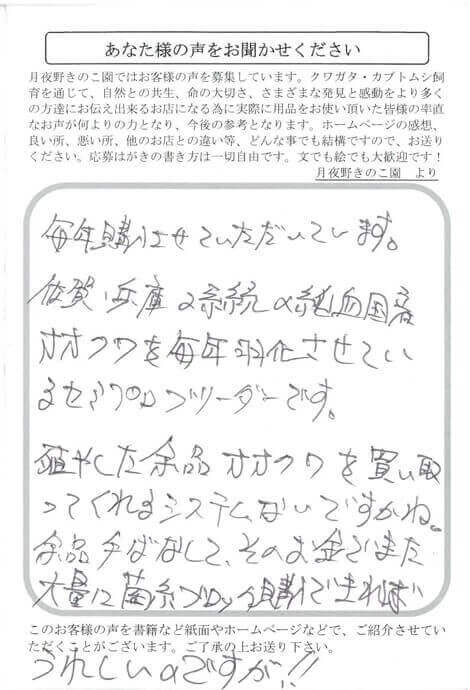 あなた様の声をお聞かせください
月夜野きのこ園ではお客様の声を募集しています。クワガタ・カブトムシ飼
育を通じて、自然との共生、命の大切さ、さまざまな発見と感動をより多く
の方達にお伝え出来るお店になる為に実際に用品をお使い頂いた皆様の率直
なお声が何よりの力となり、今後の参考となります。ホームページの感想、
良い所、悪い所、他のお店との違い等、どんな事でも結構ですので、お送り
ください。応募はがきの書き方は一切自由です。文でも絵でも大歓迎です！
月夜野きのこ園　より
毎年購入させていただいています。
佐賀、兵庫2系統の純血国産
オオクワを毎年羽化させてい
るセミプロブリーダーです。
殖やした余品オオクワを買い取
ってくれるシステムないですかね。
余品手ばなして、そのお金でまた
大量に菌糸ブロック購入できれば
このお客様の声を書籍など紙面やホームページなどで、ご紹介させてい
ただくことがございます。ご了承の上お送り下さい。
うれしいのですが!!